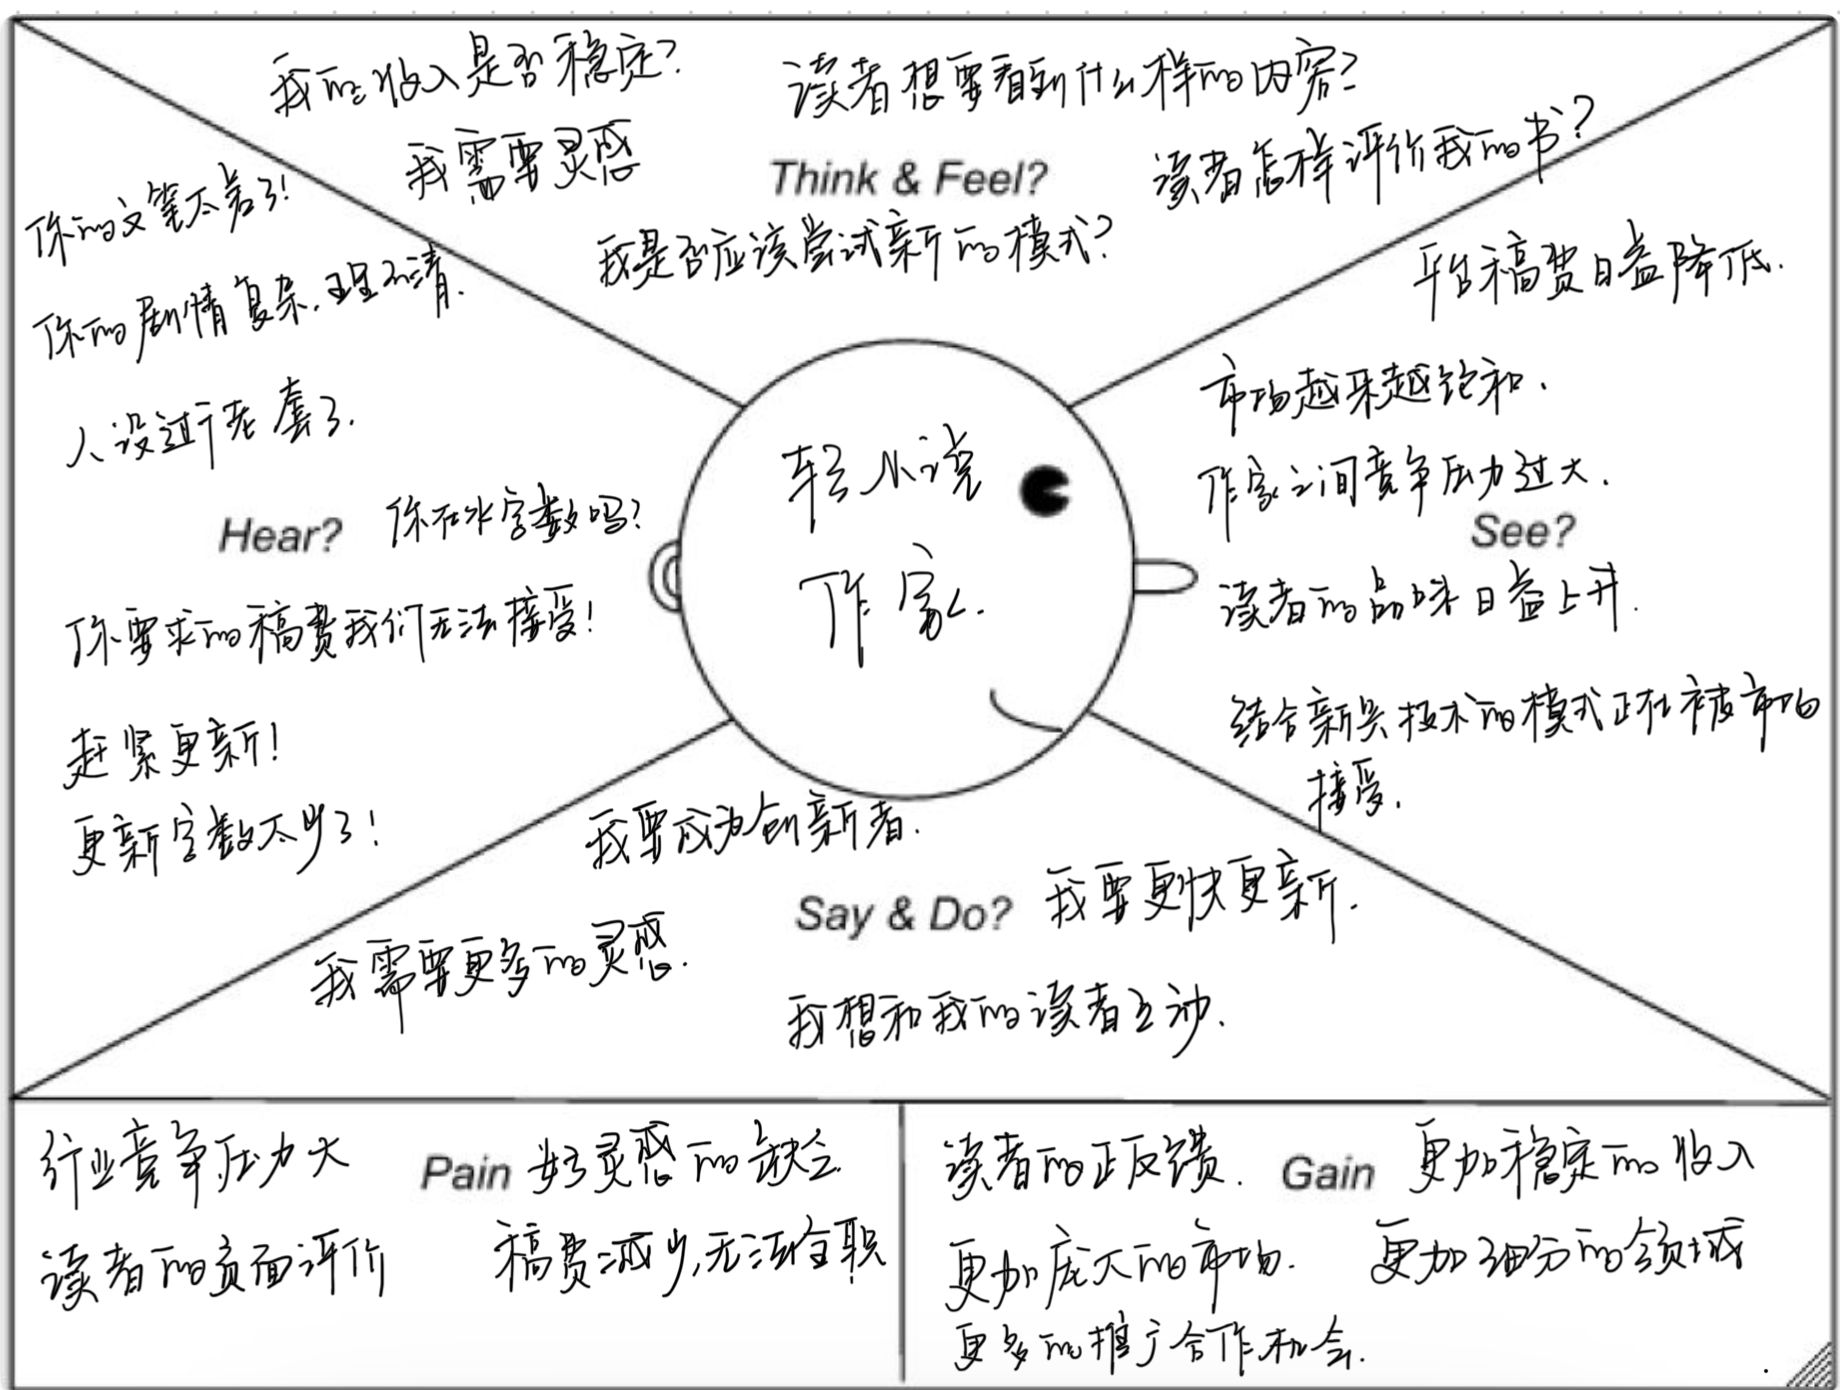 我的收入是否稳定?
读者想要看到什么样的内容?
我需要灵感
Think & Feel?
读者怎样评价我的书?
我是否应该尝试新的模式?
你的文笔太差了!
你的剧情复杂,理不清.
人设过于老套了.
Hear?
你在水字数吗?
你要求的稿费我们无法接受!
赶紧更新!
更新字数太少了!
轻小说
作家.
平台稿费日益降低.
市场越来越饱和.
作家之间竞争压力过大.
See?
读者的品味日益上升.
结合新兴技术的模式正在被市场
接受.
我要成为创新者.
Say & Do?
我要更快更新.
我需要更多的灵感.
我想和我的读者互动.
行业竞争压力大
Pain
好灵感的缺乏
读者的负面评价
稿费减少,无法全职
读者的正反馈.
Gain
更加稳定的收入
更加庞大的市场.
更加细分的领域
更多的推广合作机会.